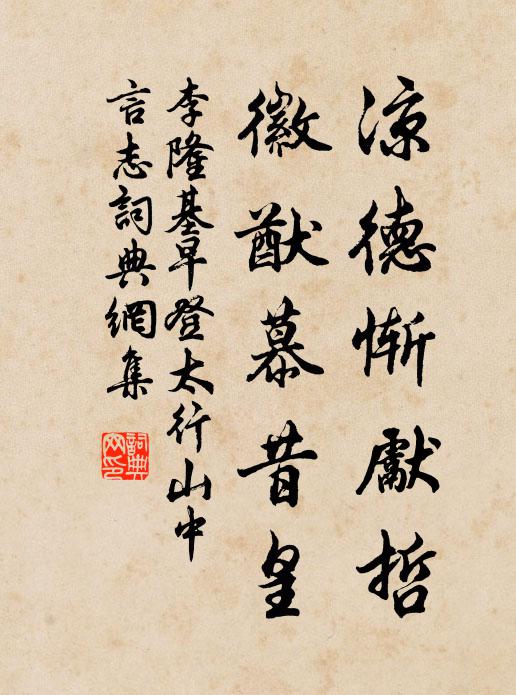 涼德慚獻哲
徽猷慕昔皇
李隆基早登太行山中
言志詞典網集
詞典
网印